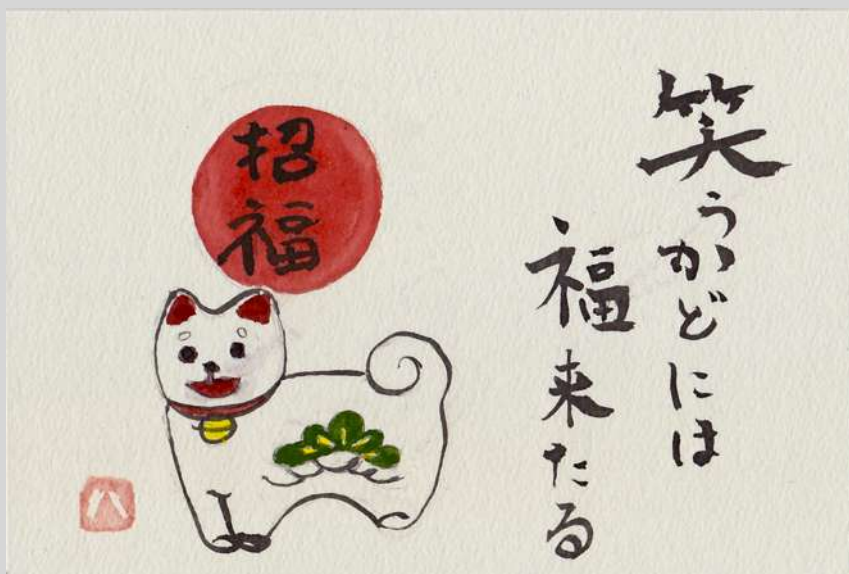 笑うかどには
福来たる
招
福
八